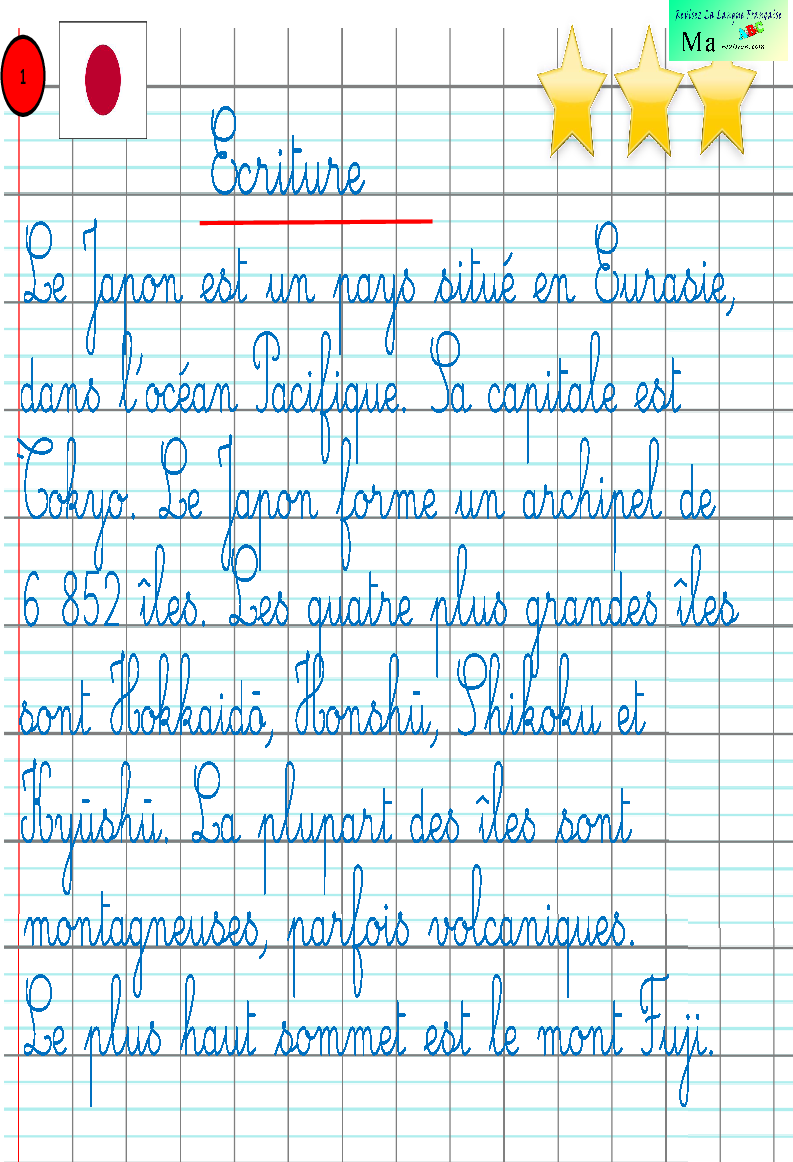 Revisez La Langue Française
Ma
1
Ecriture
Le Japon est un pays situé en Eurasie,
dans l'océan Pacifique. Sa capitale est
Tokyo. Le Japon forme un archipel de
6 852 îles. Les quatre plus grandes îles
sont Hokkaidō, Honshū, Shikoku et
Kyūshū. La plupart des îles sont
montagneuses, parfois volcaniques.
Le plus haut sommet est le mont Fuji.